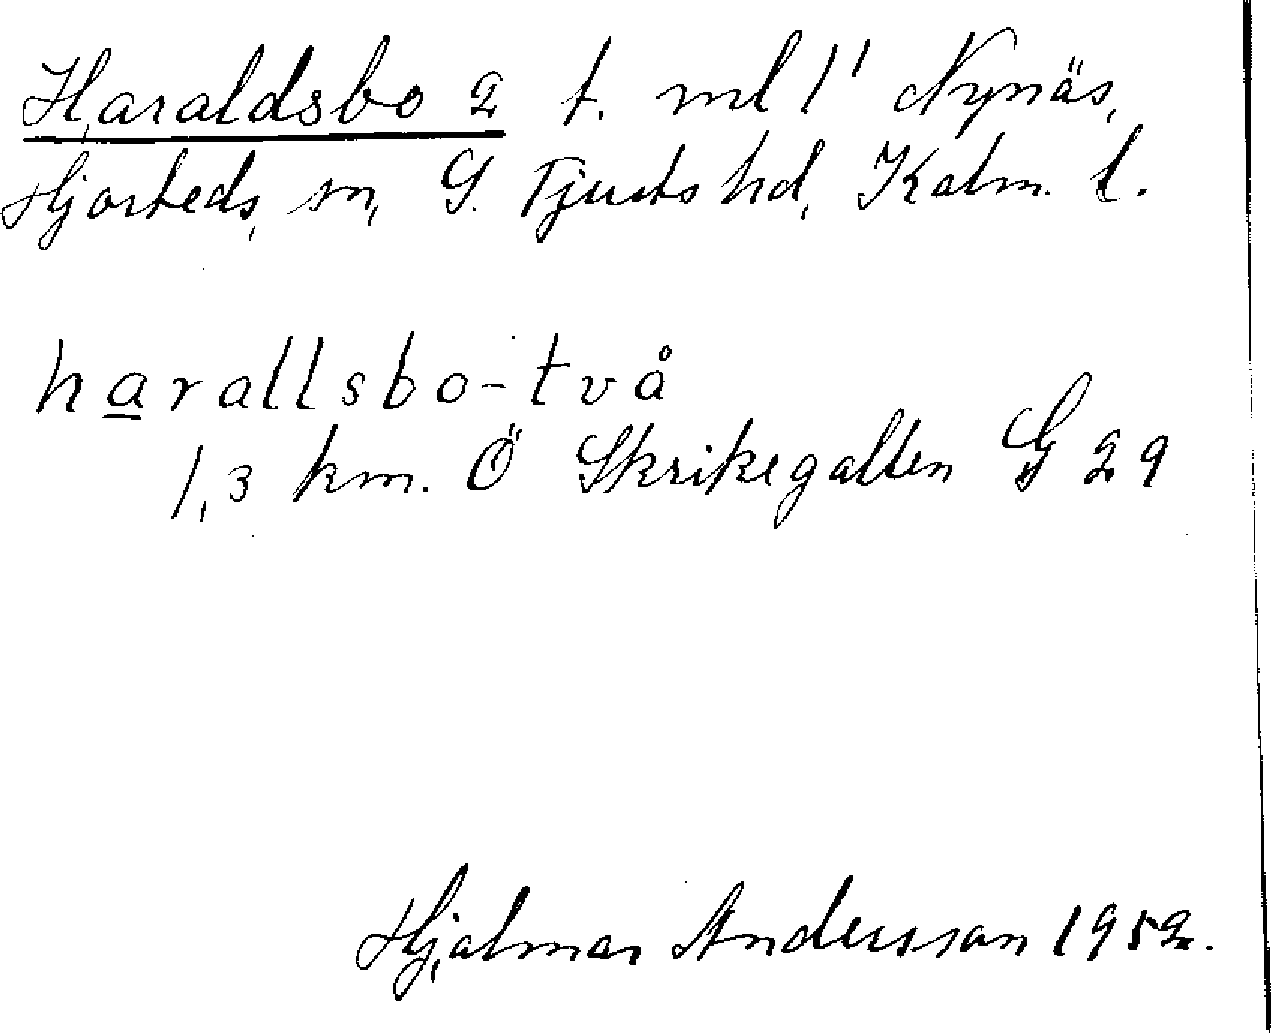 Haraldsbo 2 t. ml 1' Nynäs,
Hjorteds, sn, S. Tjusts hd, Kalm. l.
harallsbo-två
1,3 km. Ö Skrikegallen G 29
Hjalmar Andersson 1952.